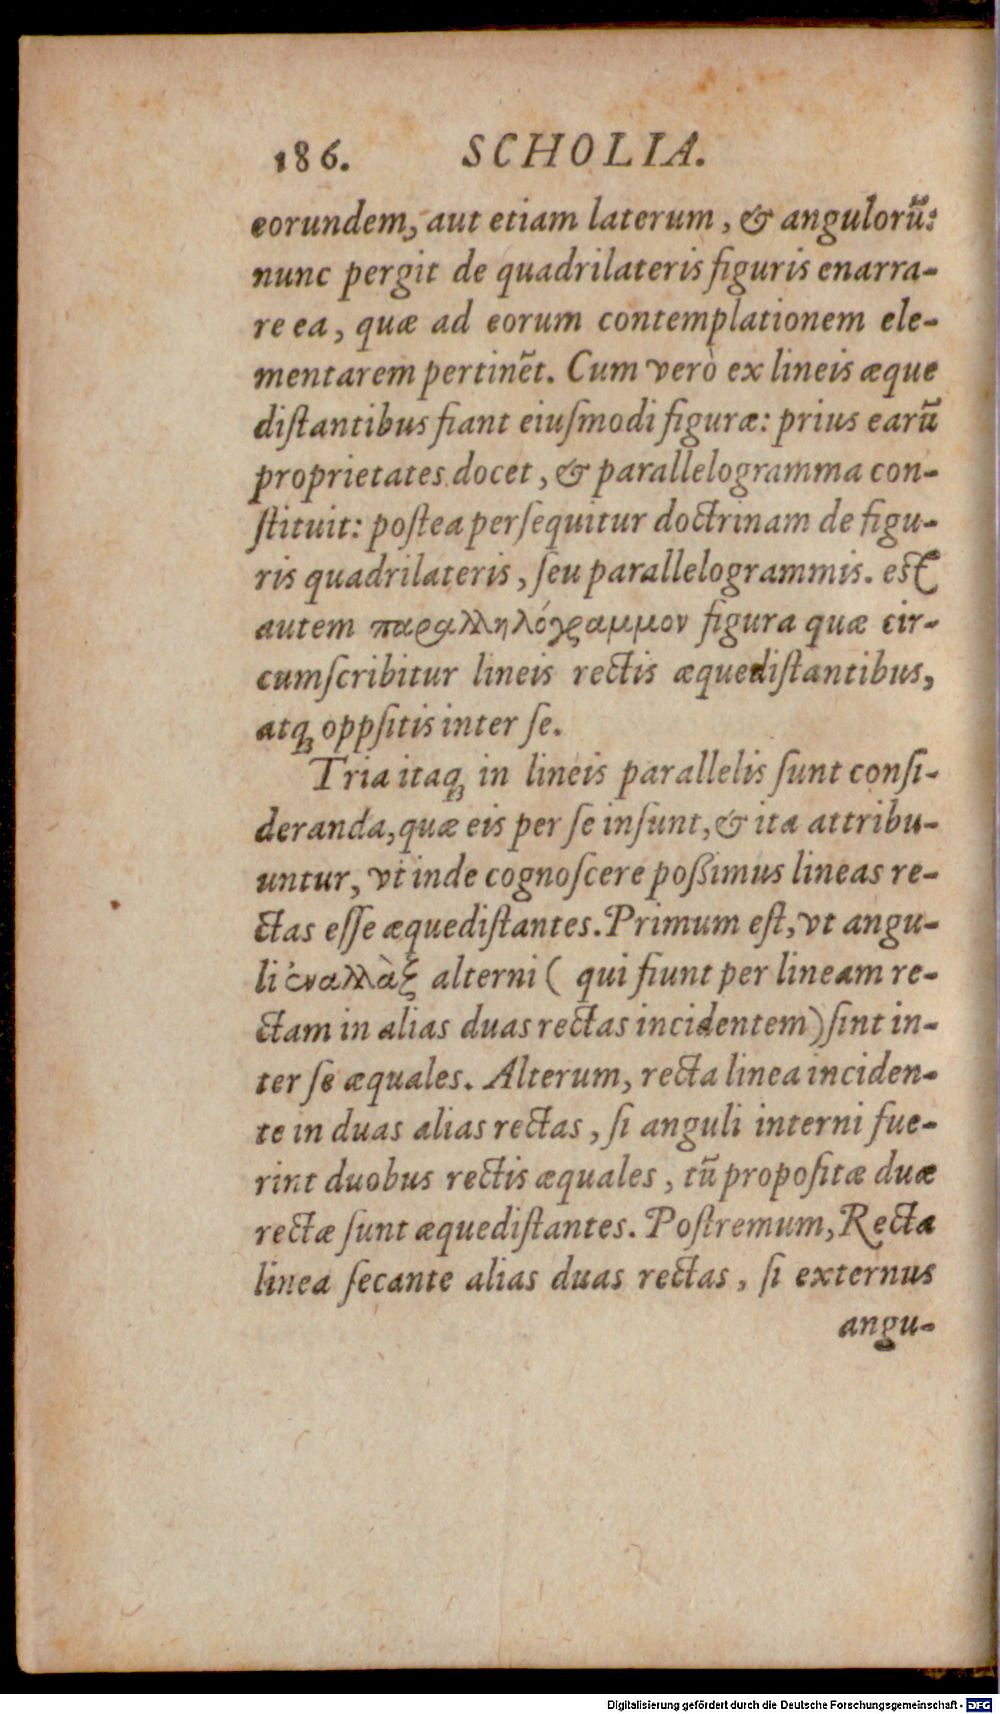 186. SCHOLIA.
eorundem, aut etiam laterum, & angulorũ:
nunc pergit de quadrilateris figuris enarra-
re ea, quæ ad eorum contemplationem ele-
mentarem pertinẽt. Cum verò ex lineis æque
diſtantibus fiant eiuſmodi figuræ: prius earũ
proprietates docet, & parallelogramma con-
ſtituit: poſtea perſequitur doctrinam de figu-
ris quadrilateris, ſeu parallelogrammis. est
autem παραλληλόγραμμον figura quæ cir-
cumſcribitur lineis rectis æquediſtantibus,
atq; oppſitis inter ſe.
Tria itaq; in lineis parallelis ſunt conſi-
deranda, quæ eis per ſe inſunt, & ita attribu-
untur, vt inde cognoſcere poßimus lineas re-
ctas eſſe æquediſtantes. Primum eſt, vt angu-
li ἐναλλὰξ alterni ( qui fiunt per lineam re-
ctam in alias duas rectas incidentem) ſint in-
ter ſe æquales. Alterum, recta linea inciden-
te in duas alias rectas, ſi anguli interni fue-
rint duobus rectis æquales, tũ propoſitæ duæ
rectæ ſunt æquediſtantes. Poſtremum, Recta
linea ſecante alias duas rectas, ſi externus
angu-
Digitalisierung gefördert durch die Deutsche Forschungsgemeinschaft - DFG